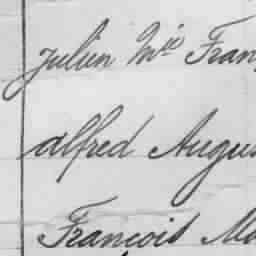 Julien Mie Fran
Alfred Augus
François Ma